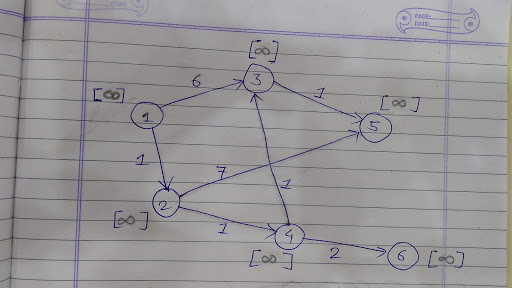 PAGE:
DATE:
[∞]
6
3
1
[∞]
[∞]
1
5
1
7
2
1
[∞]
1
4
2
6
[∞]
[∞]